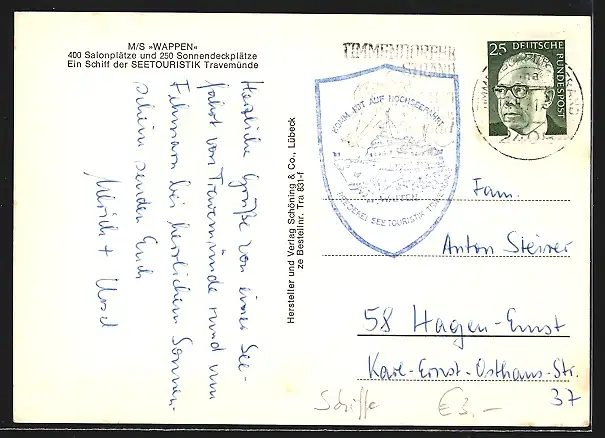 M/S »WAPPEN«
400 Salonplätze und 250 Sonnendeckplätze
Ein Schiff der SEETOURISTIK Travemünde
Herzliche Grüße von einer See-
fahrt von Travemünde rund um
Fehmarn bei herrlichem Sonnen-
schein senden Euch
Ulrich + Ursel
Hersteller und Verlag Schöning & Co., Lübeck
ze Bestellnr. Tra 831-f
TIMMENDORFER
STRAND
KOMM MIT AUF HOCHSEEFAHRT
REEDEREI SEETOURISTIK
25 DEUTSCHE
BUNDESPOST
Fam.
Anton Steiner
58 Hagen-Ernst
Karl-Ernst-Osthaus-Str.
37
Schiffe €3,-